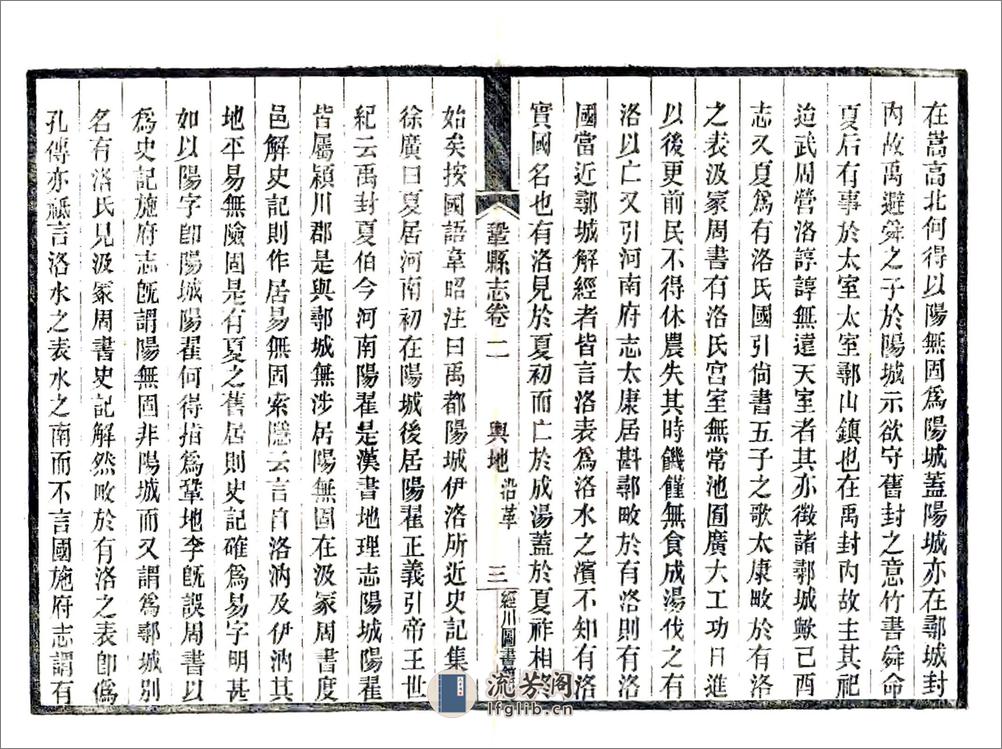 在嵩高北何得以陽無固爲陽城蓋陽城亦在鄩城封
內故禹避舜之子於陽城示欲守舊封之意竹書舜命
夏后有事於太室太室鄩山鎮也在禹封內故主其祀
迨武周營洛諄諄無遠天室者其亦徵諸鄩城歟己酉
志久夏爲有洛氏國引尙書五子之歌太康畋於有洛
之表汲冢周書有洛氏宮室無常池囿廣大工功日進
以後更前民不得休農失其時饑饉無食成湯伐之有
洛以亡又引河南府志太康居斟鄩畋於有洛則有洛
國當近鄩城解經者皆言洛表爲洛水之濱不知有洛
實國名也有洛見於夏初而亡於成湯蓋於夏祚相
鞏縣志卷二 輿地 沿革 三 經川圖書
始矣按國語韋昭注曰禹都陽城伊洛所近史記集
徐廣曰夏居河南初在陽城後居陽翟正義引帝王世
紀云禹封夏伯今河南陽翟是漢書地理志陽城陽翟
皆屬潁川郡是與鄩城無涉居陽無固在汲冢周書度
邑解史記則作居易無固索隱云言自洛汭及伊汭其
地平易無險固是有夏之舊居則史記確爲易字明甚
如以陽字卽陽城陽翟何得指爲鞏地李旣誤周書以
爲史記施府志旣謂陽無固非陽城而又謂爲鄩城別
名有洛氏見汲冢周書史記解然畋於有洛之表卽僞
孔傳亦祗言洛水之表水之南而不言國施府志謂有
流芳阁
lfglib.cn